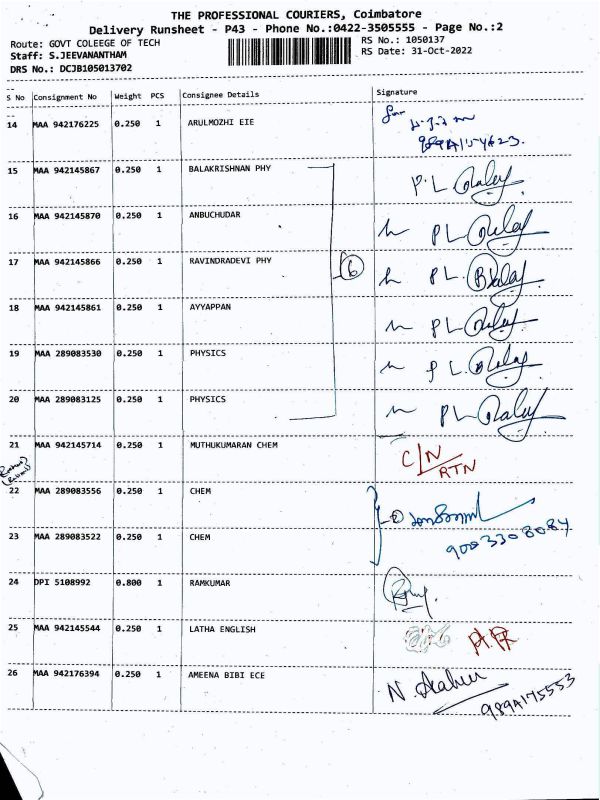 THE PROFESSIONAL COURIERS, Coimbatore
Delivery Runsheet - P43 - Phone No.:0422-3505555 - Page No.:2
Route: GOVT COLEEGE OF TECH
RS No.: 1050137
Staff: S.JEEVANANTHAM
RS Date: 31-Oct-2022
DRS No.: DCJB105013702
S No Consignment No Weight PCS Consignee Details Signature
14 MAA 942176225 0.250 1 ARULMOZHI EIE
15 MAA 942145867 0.250 1 BALAKRISHNAN PHY P.L
16 MAA 942145870 0.250 1 ANBUCHUDAR PL
17 MAA 942145866 0.250 1 RAVINDRADEVI PHY 6 PL.
18 MAA 942145861 0.250 1 AYYAPPAN PL
19 MAA 289083530 0.250 1 PHYSICS
20 MAA 289083125 0.250 1 PHYSICS PL
21 MAA 942145714 0.250 1 MUTHUKUMARAN CHEM C/N
RTN
22 MAA 289083556 0.250 1 CHEM
23 MAA 289083522 0.250 1 CHEM
24 DPI 5108992 0.800 1 RAMKUMAR
25 MAA 942145544 0.250 1 LATHA ENGLISH
26 MAA 942176394 0.250 1 AMEENA BIBI ECE